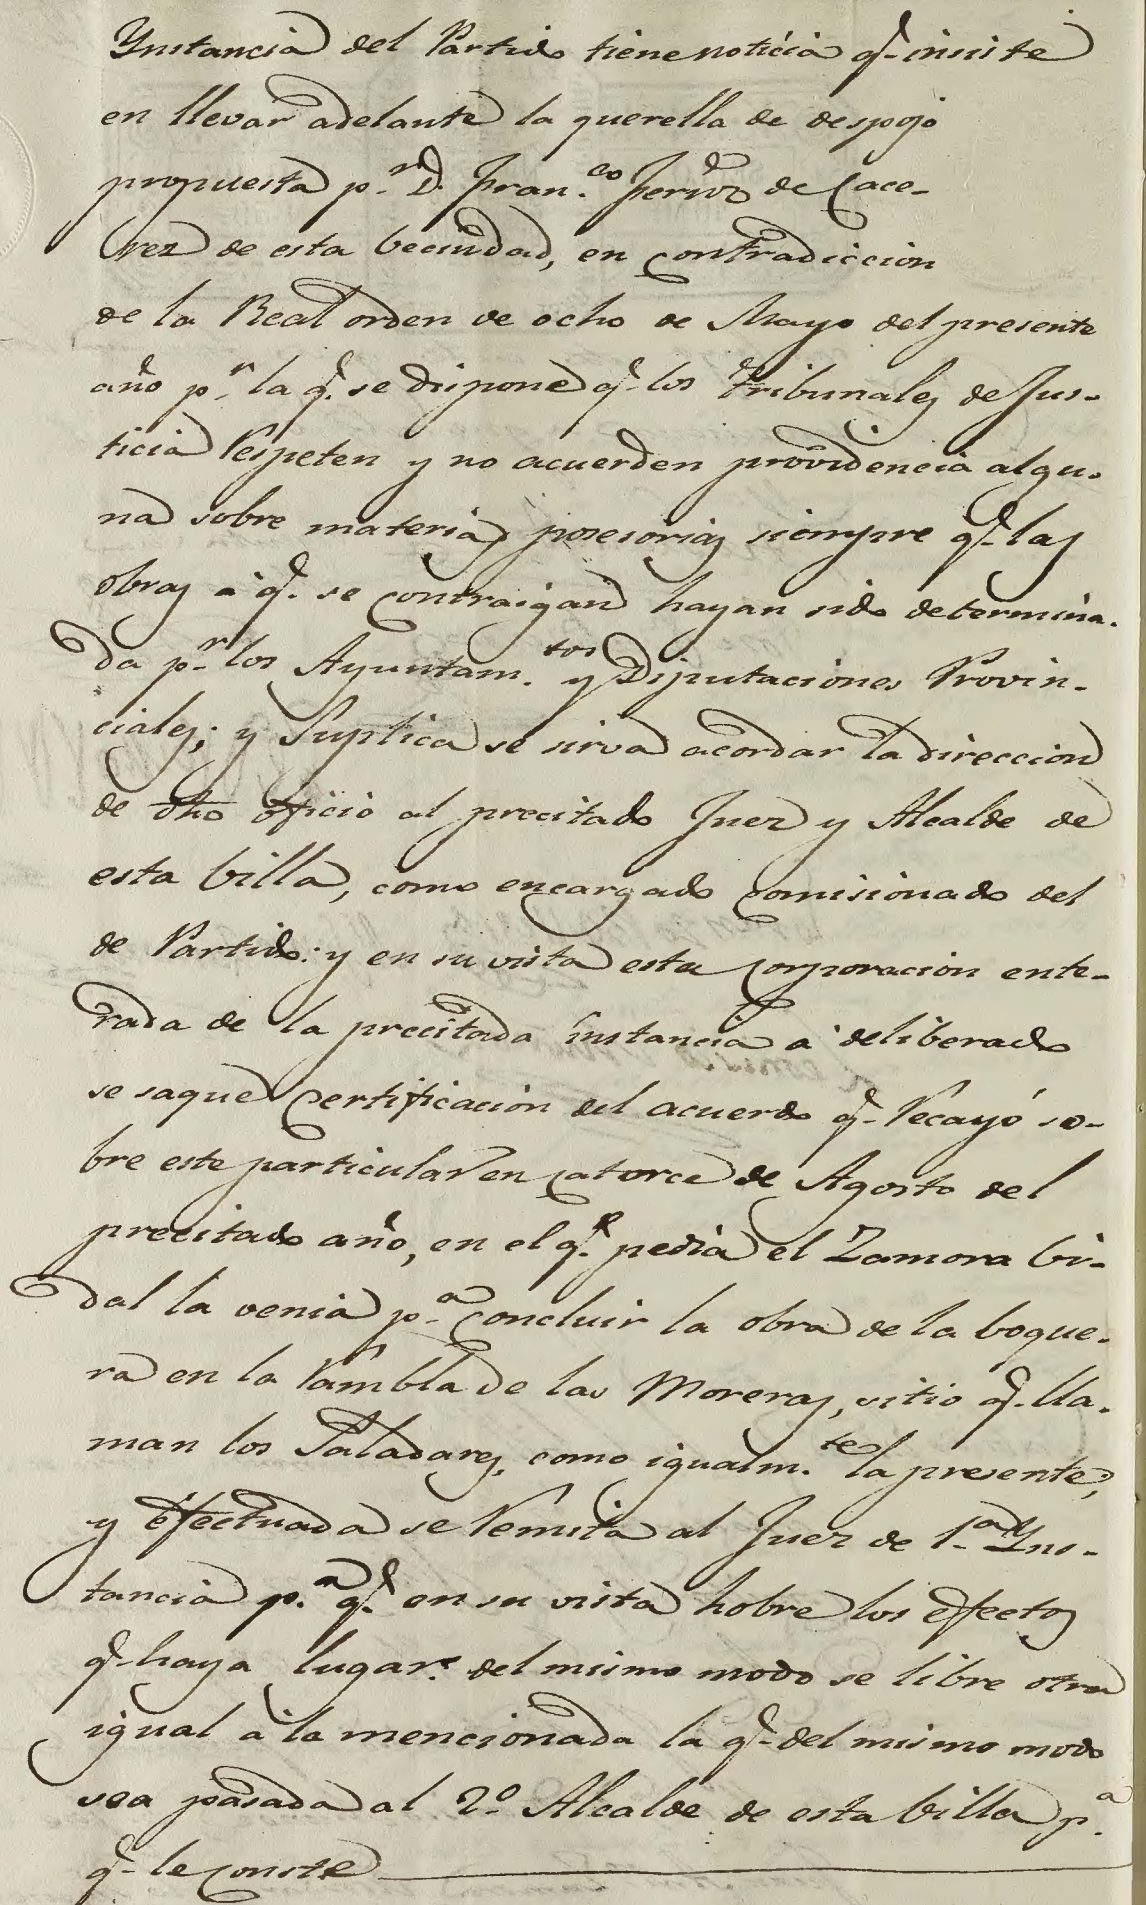 Ynstancia del Partido tiene noticia q.e insiste
en llevar adelante la querella de despojo
propuesta p.r D. Fran.co Ferrz de Cace-
rez de esta becindad, en contradiccion
de la Real orden de ocho de Mayo del presente
año p.r la q.e se dispone q.e los tribunales de Jus-
ticia Respeten y no acuerden providencia algu-
na sobre materias posesorias siempre q.e las
obras á q.e se contraigan hayan sido determina-
da p.r los Ayuntam.tos y Diputaciones Provin-
ciales; y Suplica se sirva acordar la direccion
de dho oficio al precitado Juez y Alcalde de
esta billa, como encargado comisionado del
de Partido: y en su vista esta corporacion ente-
rada de la precitada instancia a deliberado
se saque Certificacion del acuerdo q.e Recayó so-
bre este particular en catorce de Agosto del
precitado año, en el q.e pedia el Zamora bi-
dal la venia p.a concluir la obra de la boque-
ra en la Rambla de las Moreras, sitio q.e lla-
man los Saladares, como igualm.te la presente;
y efectuada se Remita al Juez de 1.a Yns-
tancia p.a q.e en su vista hobre los efectos
q.e haya lugar. del mismo modo se libre otra
igual á la mencionada la q.e del mismo modo
sea pasada al 2.o Alcalde de esta billa p.a
q.e le conste